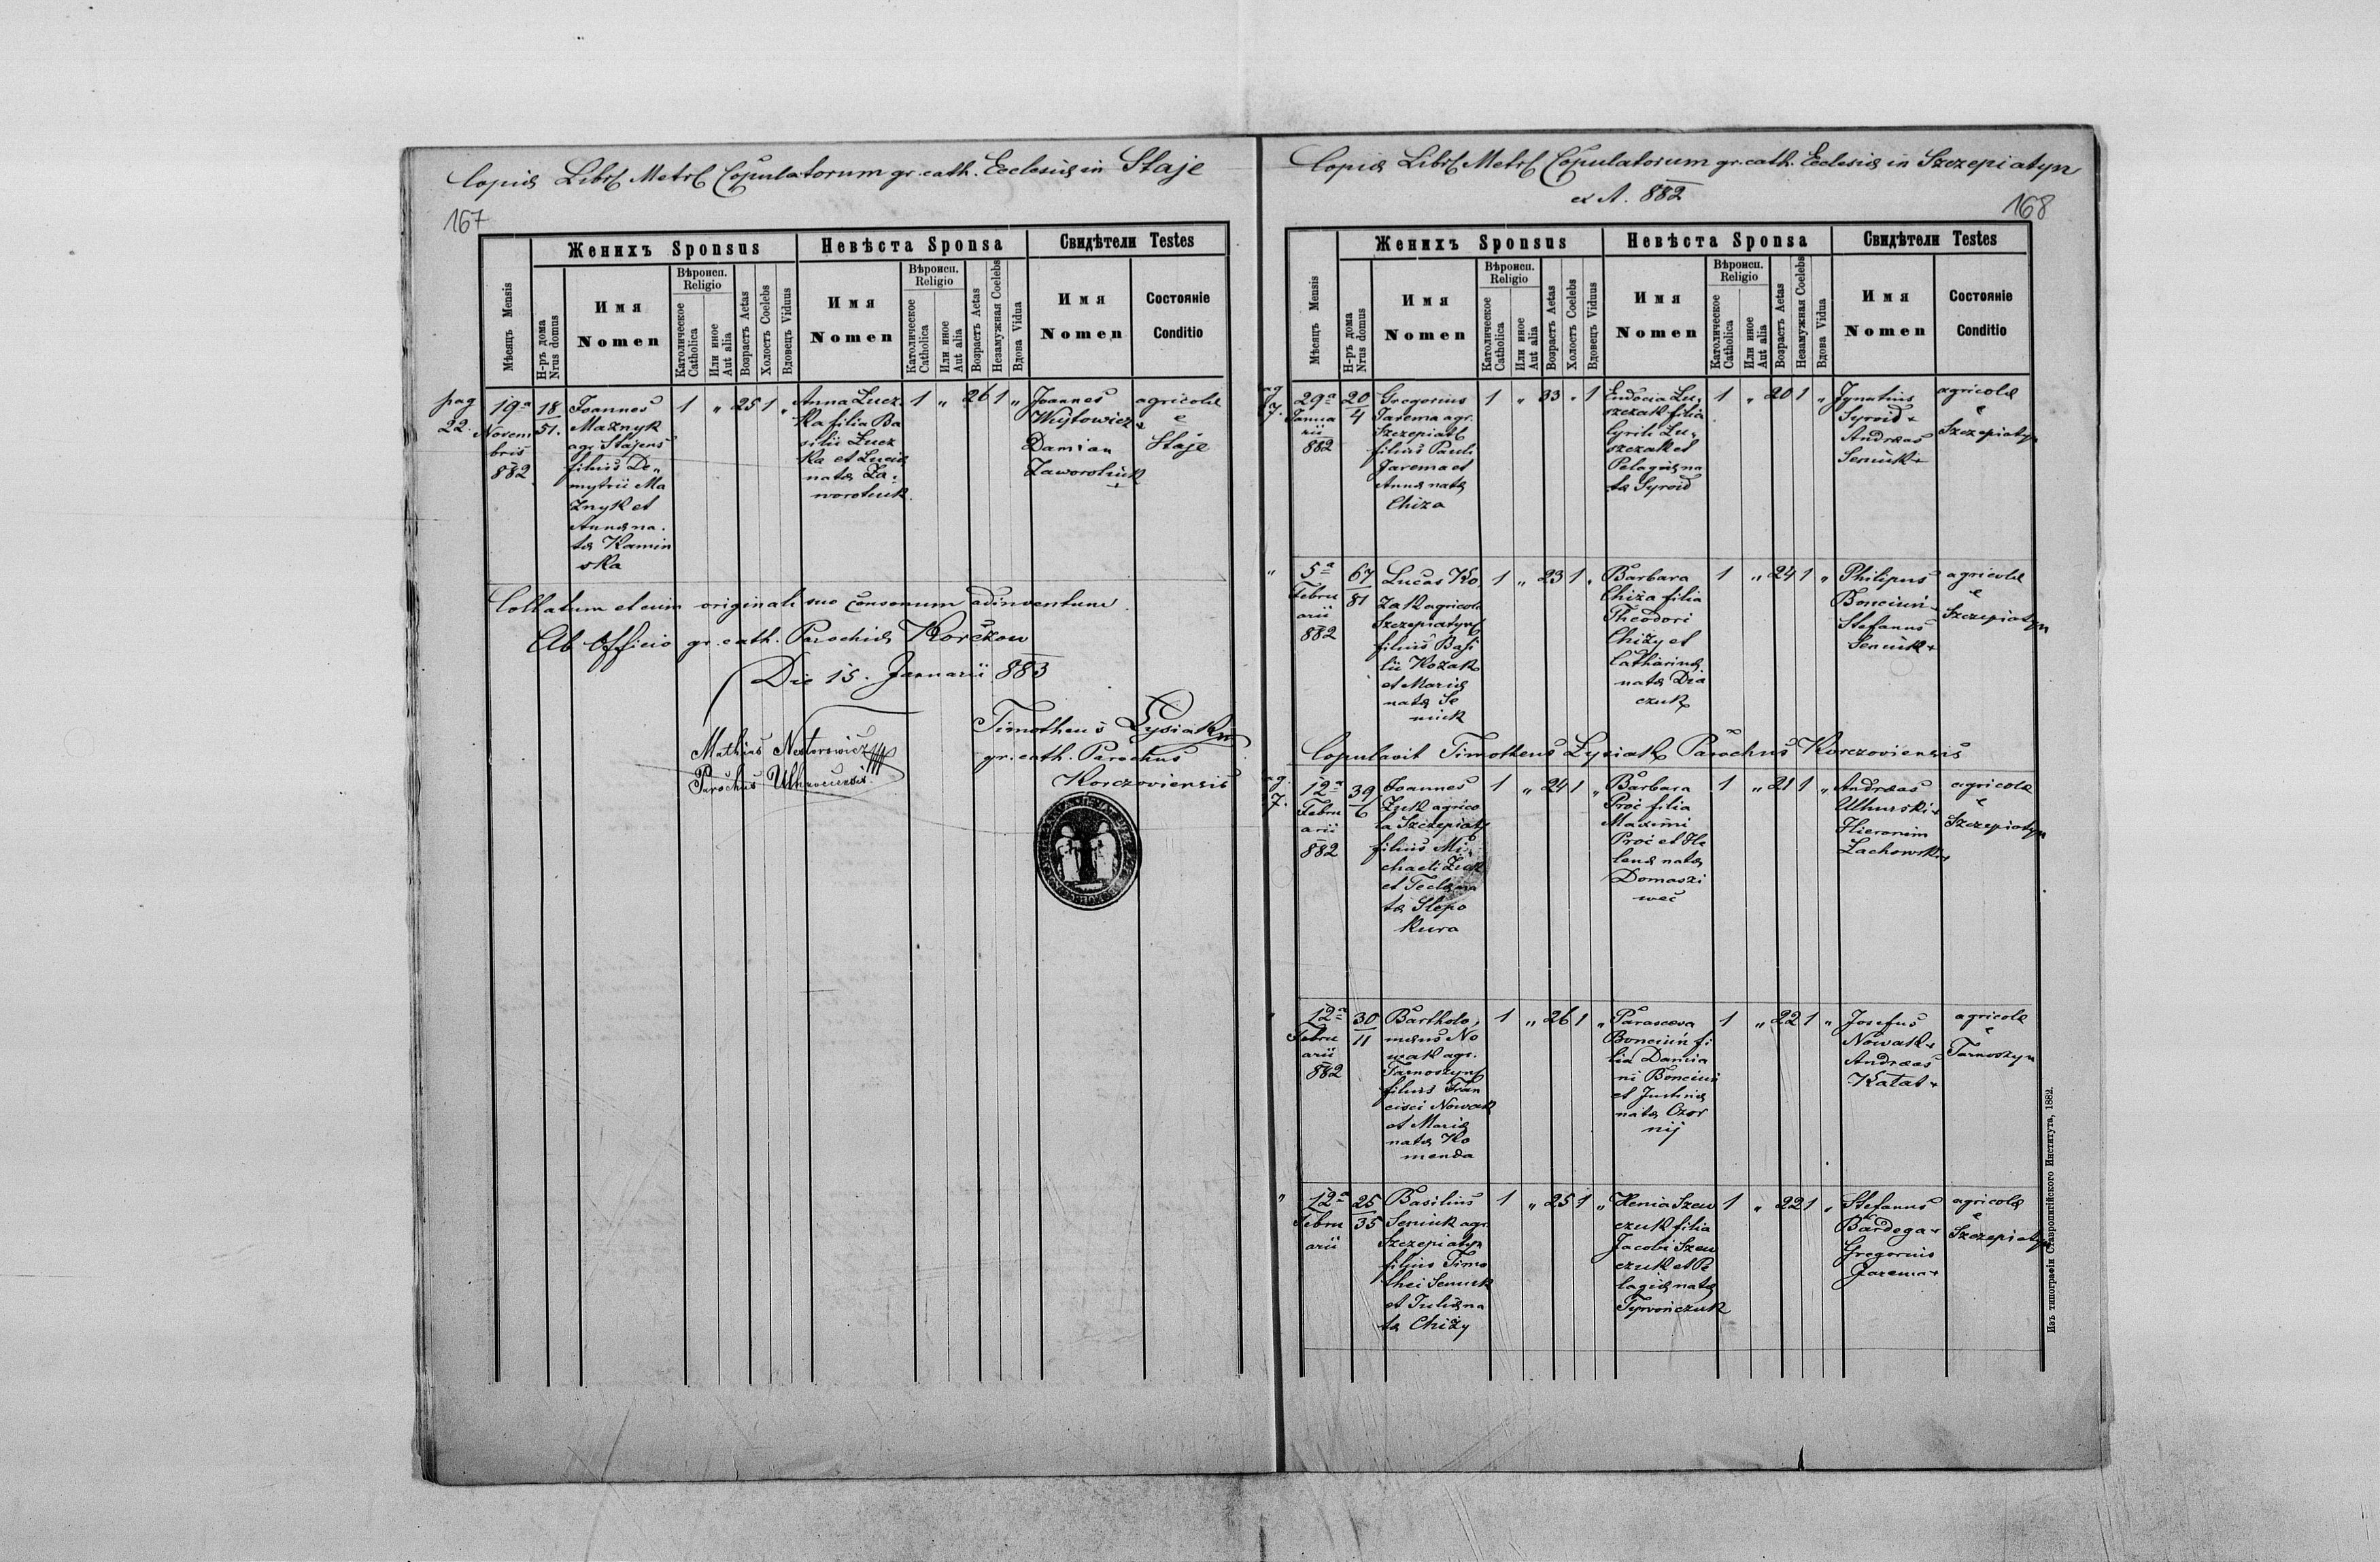 Copia Libri Metri Copulatorum gr. cath. Ecclesiæ in Staje
167
Женихъ Sponsus
Невѣста Sponsa
Свидѣтели Testes
Мѣсяцъ Mensis
Н-ръ дома Nrus domus
Имя
Nomen
Вѣроисп.
Religio
Католическое Catholica
Или иное Aut alia
Возрастъ Aetas
Холостъ Coelebs
Вдовецъ Viduus
Имя
Nomen
Вѣроисп.
Religio
Католическое Catholica
Или иное Aut alia
Возрастъ Aetas
Незамужная Coelebs
Вдова Vidua
Имя
Nomen
Состояніе
Conditio
pag
22.
19ª
Novem
bris
882
18
51.
Joannes
Maznyk
agr. Stajens
filius De„
mytrii Ma
znyk et
Annæ na.
tæ Kamin
ska
1 „ 25 1 „
Anna Lucz.
ka filia Ba
silii Lucz
ka et Luciæ
natæ Za.
worotiuk.
1 „ 26 1 „
Joannes
Wujtowicz +
Damian
Zaworotiuk
+
agricolæ
e
Staje
Collatum et cum originali suo consonum adinventum.
Ab Officio gr. cath. Parochiæ Korczow
Die 15. Januarii 883
Mathias Nestorowicz
Parochus Uhnoviensis
Timotheus Lysiak
gr. cath. Parochus
Korczoviensis
Copia Libri Metri Copulatorum gr. cath. Ecclesiæ in Szczepiatyn
ex A. 882
168
Женихъ Sponsus
Невѣста Sponsa
Свидѣтели Testes
Мѣсяцъ Mensis
Н-ръ дома Nrus domus
Имя
Nomen
Вѣроисп.
Religio
Католическое Catholica
Или иное Aut alia
Возрастъ Aetas
Холостъ Coelebs
Вдовецъ Viduus
Имя
Nomen
Вѣроисп.
Religio
Католическое Catholica
Или иное Aut alia
Возрастъ Aetas
Незамужная Coelebs
Вдова Vidua
Имя
Nomen
Состояніе
Conditio
ag
7.
29ª
Janua
rii
882
20
4
Gregorius
Jarema agr.
Szczepiat
filius Pauli
Jarema et
Annæ natæ
Chiza
1 „ 33 „ 1
Eudocia Lu„
szczak filia
Cyrili Lu„
szczak et
Pelagiæ na
tæ Syroid
1 „ 20 1 „
Jgnatius
Syroid +
Andreas
Seniuk +
agricolæ
e
Szczepiatyn
„
5ª
Febru
arii
882
67
81
Lucas Ko
zak agricola
Szczepiatyn
filius Basi
lii Kozak
et Mariæ
natæ Se
niuk
1 „ 23 1 „
Barbara
Chiża filia
Theodori
Chiży et
Catharinæ
natæ Dia
czuk
1 „ 24 1 „
Philipus
Bonciun +
Stefanus
Seniuk +
agricolæ
e
Szczepiatyn
Copulavit Timotheus Lysiak Parochus Korczoviensis
ag.
7.
12ª
Febru
arii
882
39
6
Joannes
Żuk agrico
la Szczepiaty
filius Mi
chaeli Żuk
et Teclæ na
tæ Slepo
kura
1 „ 24 1 „
Barbara
Proć filia
Maximi
Proć et He
lenæ natæ
Domaszi
weć
1 „ 21 1 „
Andreas
Uhurski +
Hieronim
Lachowski +
agricolæ
e
Szczepiatyn
„
12ª
Febru
arii
882
30
11
Bartholo„
meus No
wak agr.
Tarnoszyn
filius Fran
cisci Nowak
et Mariæ
natæ Ko
menda
1 „ 26 1 „
Parasceva
Bonciun fi
lia Damia
ni Bonciun
et Justinæ
natæ Czor
nij
1 „ 22 1 „
Josefus
Nowak +
Andreas
Katat +
agricolæ
e
Tarnoszyn
„
12ª
Febru
arii
25
35
Basilius
Seniuk agr.
Szczepiatyn
filius Timo
thei Seniuk
et Juliæ na
tæ Chiży
1 „ 25 1 „
Xenia Szew
czuk filia
Jacobi Szew
czuk et Pe
lagiæ natæ
Tyrończuk
1 „ 22 1 „
Stefanus
Bardega +
Gregorius
Jarema +
agricolæ
e
Szczepiatyn
Изъ типографіи Ставропигійского Института, 1882.